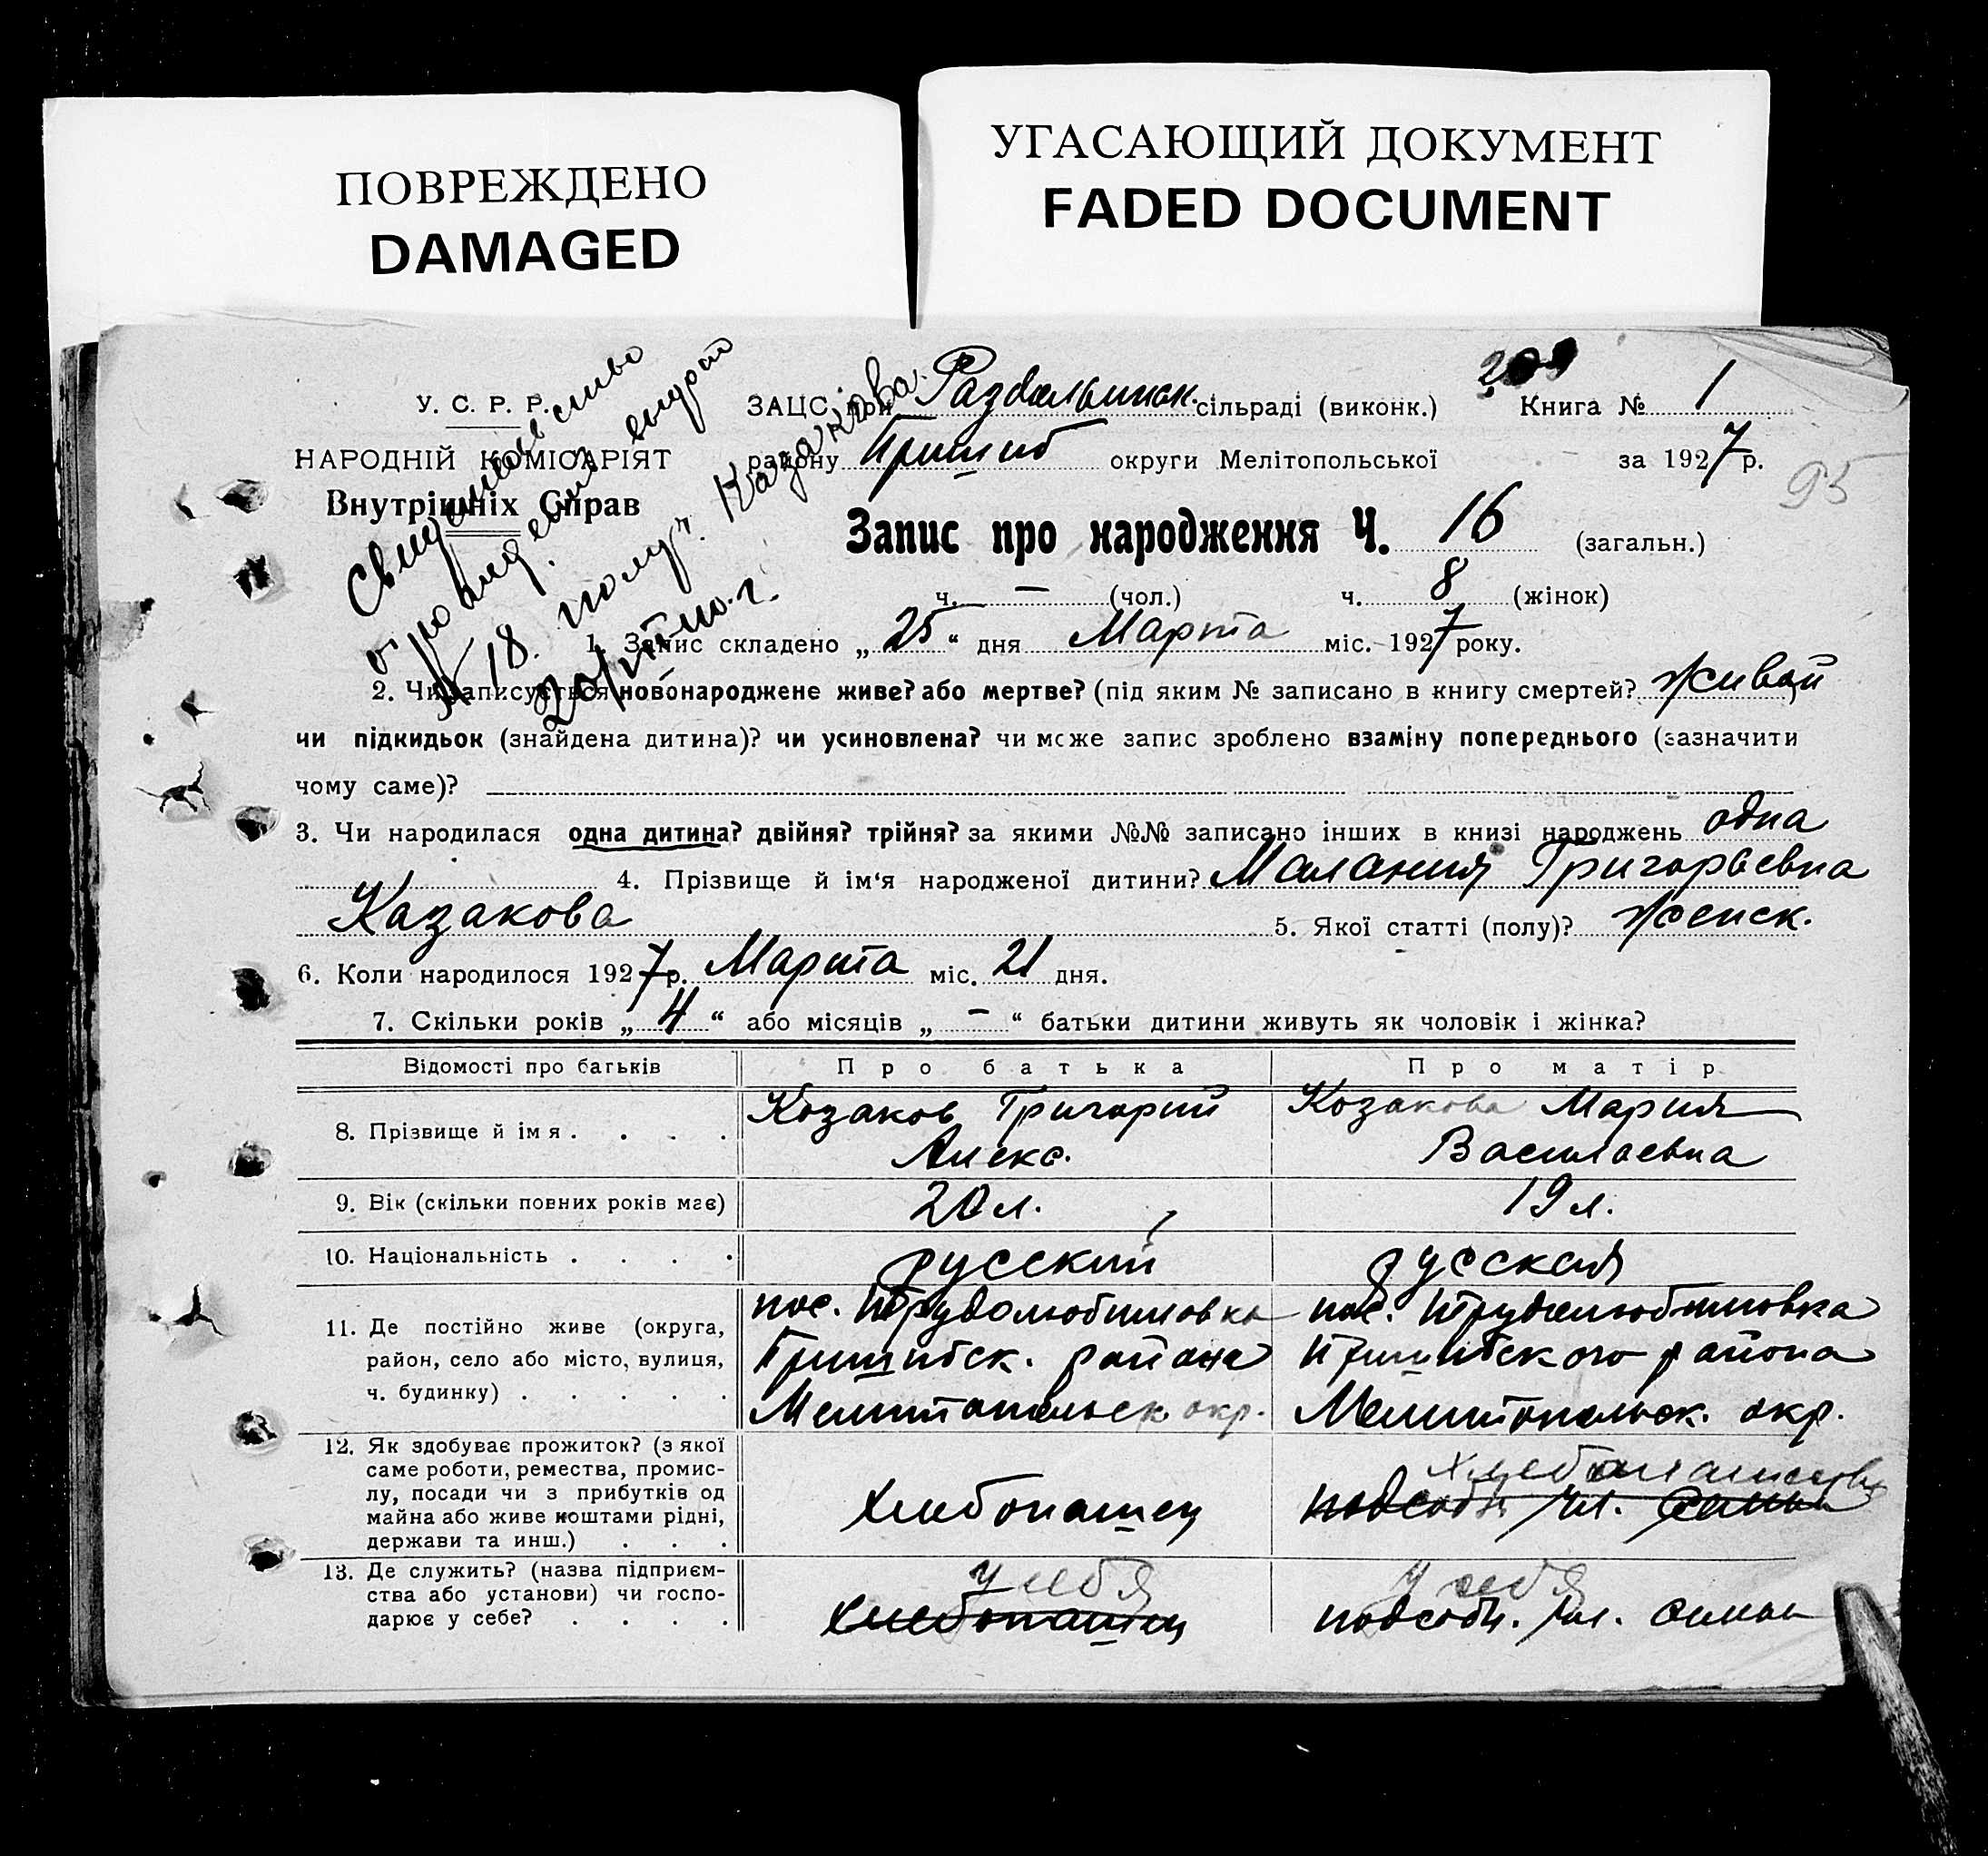 ПОВРЕЖДЕНО
DAMAGED
УГАСАЮЩИЙ ДОКУМЕНТ
FADED DOCUMENT
У. С. Р. Р.
НАРОДНІЙ КОМІСАРІЯТ
Внутрішніх Справ
Свидетельство
о рожден. выдат
№ 18. получ. Казакова
ЗАЦС при Раздольинск. сільраді (виконк.) Книга № 1
району Пришиб округи Мелітопольської за 1927 р.
95
Запис про народження Ч. 16 (загальн.)
ч. — (чол.) ч. 8 (жінок)
1. Запис складено „25“ дня Марта міс. 1927 року.
2. Чи записується новонароджене живе? або мертве? (під яким № записано в книгу смертей? живой)
чи підкидьок (знайдена дитина)? чи усиновлена? чи може запис зроблено взаміну попереднього (зазначити
чому саме)?
3. Чи народилася одна дитина? двійня? трійня? за якими №№ записано інших в книзі народжень одна
4. Прізвище й ім‘я народженої дитини? Малания Григорьевна
Казакова 5. Якої статті (полу)? женск.
6. Коли народилося 1927 р. Марта міс. 21 дня.
7. Скільки років „4“ або місяців „-“ батьки дитини живуть як чоловік і жінка?
Відомості про батьків Про батька Про матір
8. Прізвище й імя . . . . Козаков Григорий Алекс. Козакова Мария Василевна
9. Вік (скільки повних років має) 20 л. 19 л.
10. Національність . . . . русский русская
11. Де постійно живе (округа, пос. Трудолюбимовка пос. Трудолюбимовка
район, село або місто, вулиця, Пришибск. района Пришибского района
ч. будинку) . . . . . Мелитопольск окр. Мелитопольск. окр.
12. Як здобуває прожиток? (з якої
саме роботи, ремества, промис-
лу, посади чи з прибутків од
майна або живе коштами рідні,
держави та инш.) . . . хлебопашец подсобн чл. семьи
13. Де служить? (назва підприєм- у себя у себя
ства або установи) чи госпо- хлебопашец подсобн. чл. семьи
дарює у себе? . . . .